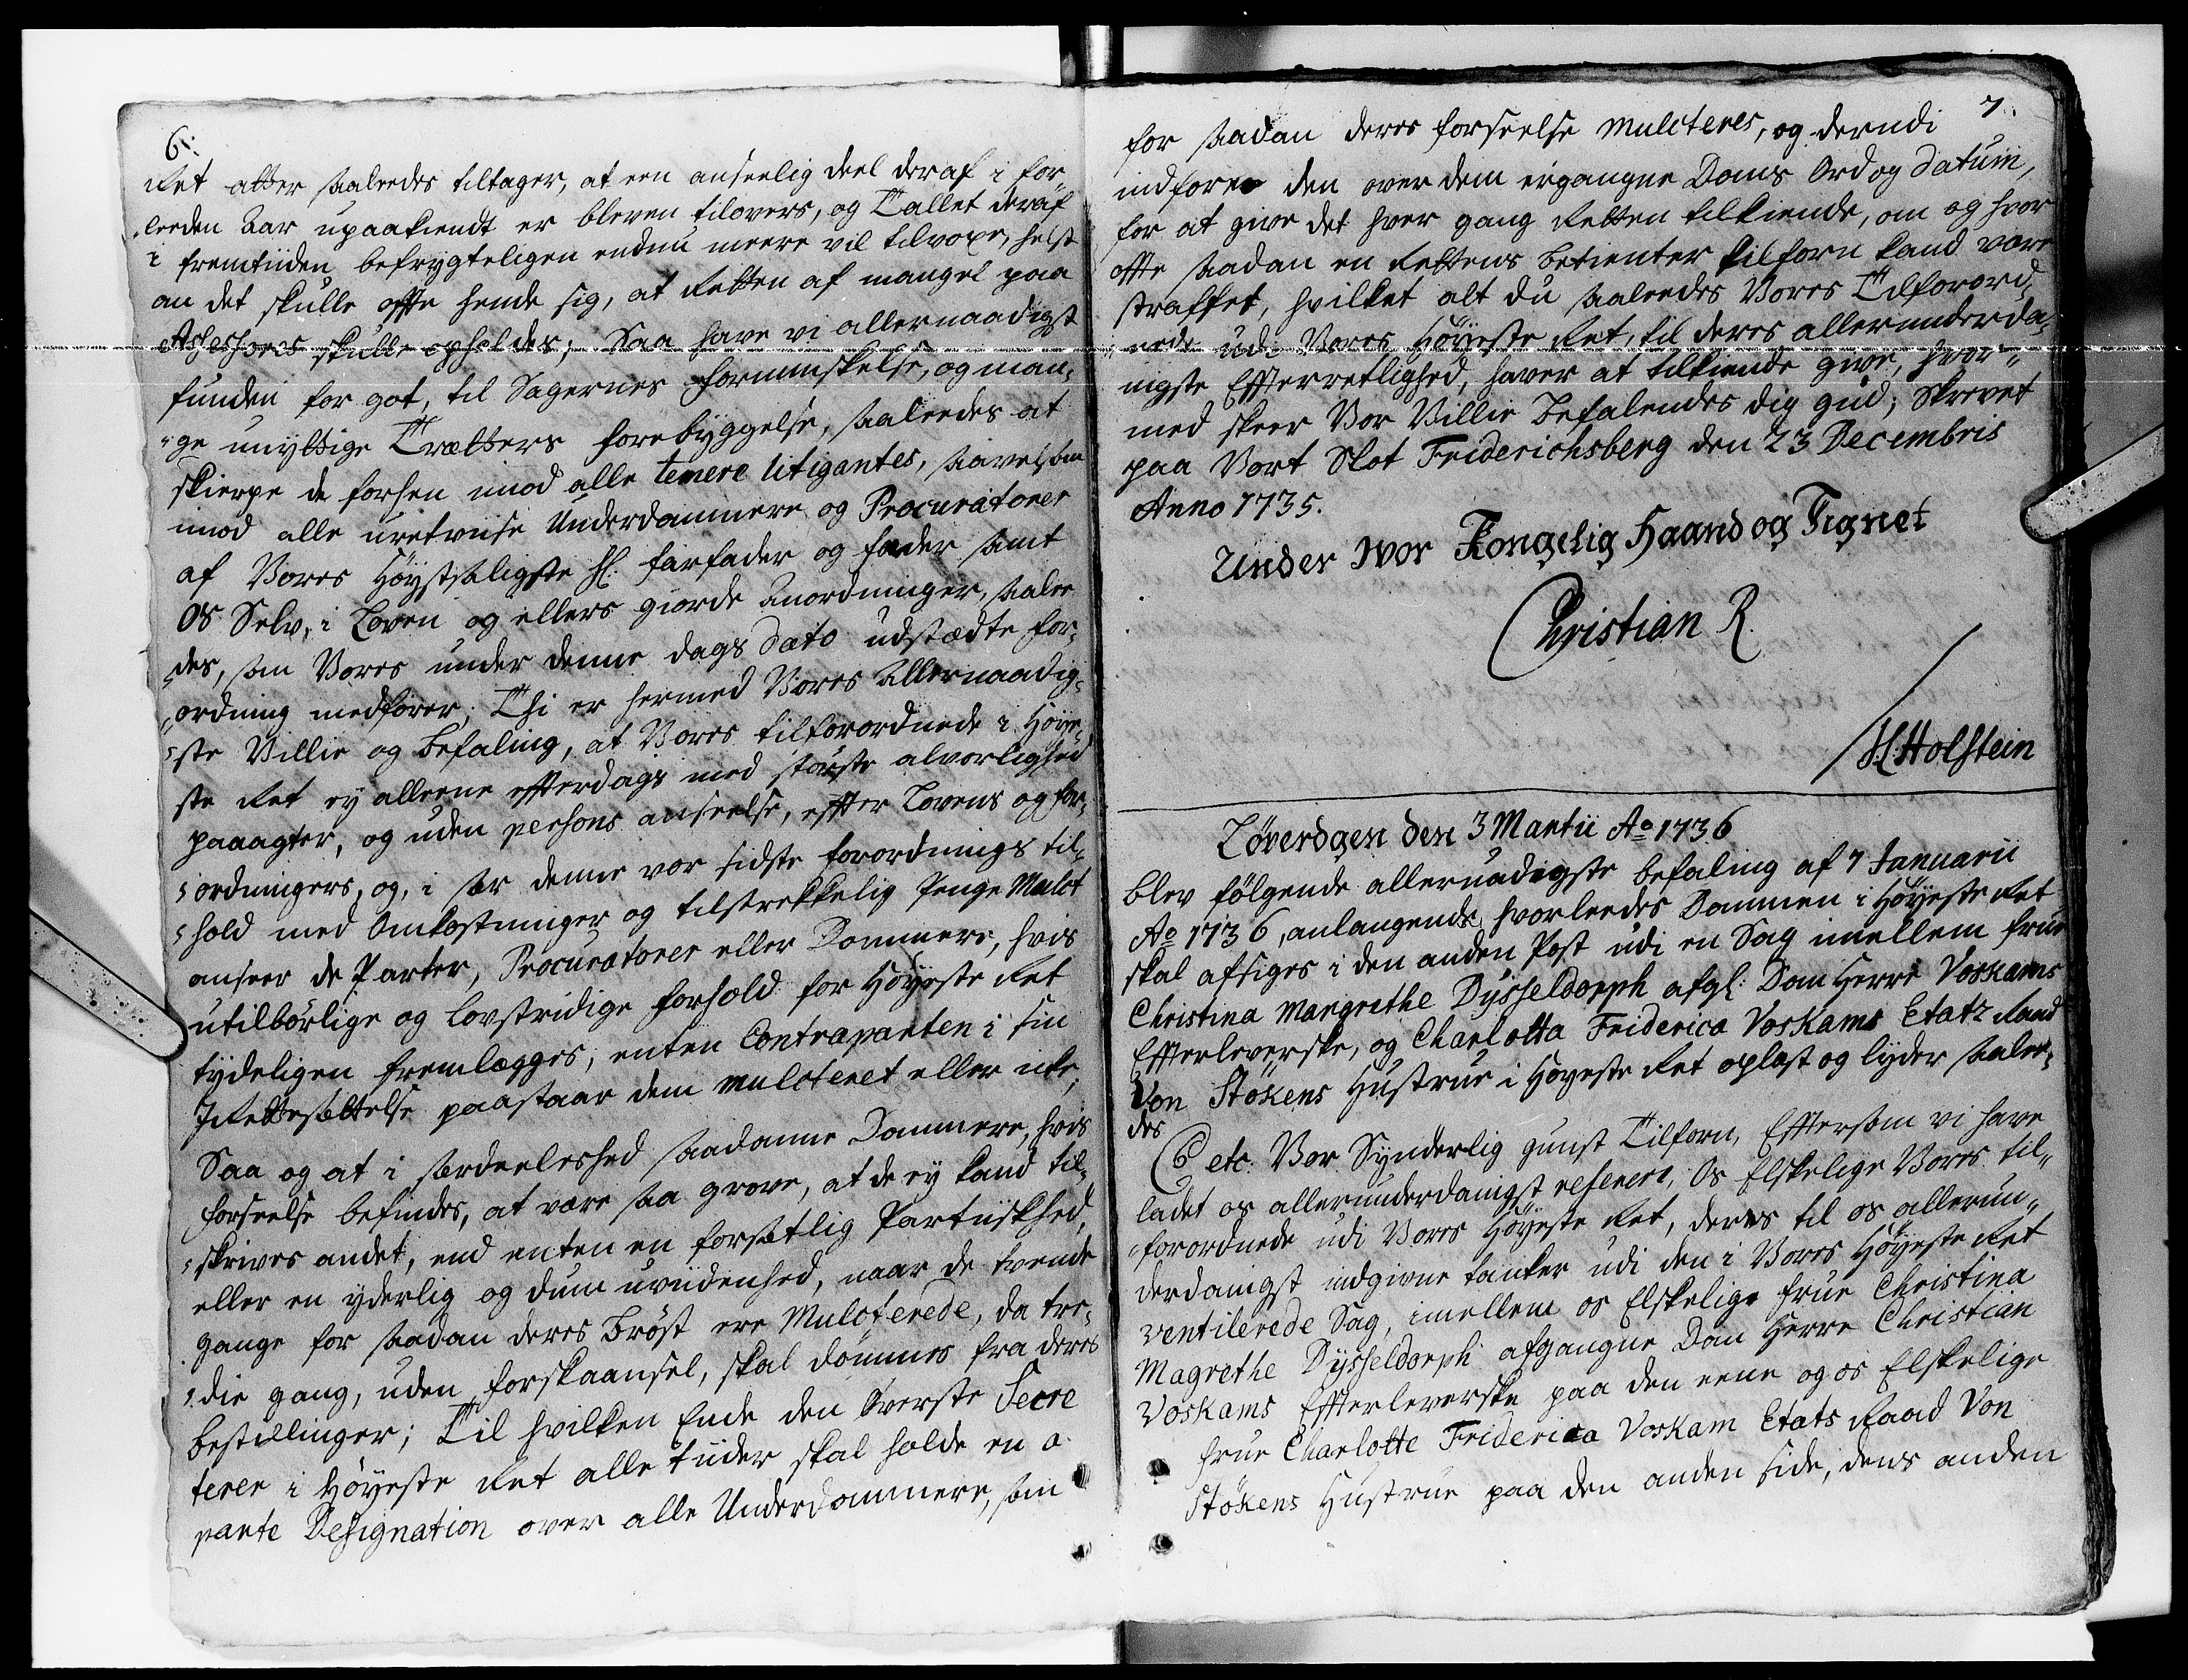 6:
Ret atter saaledes tiltager, at een anseelig deel deraf i for
leeden Aar upaakiendt er bleven tilovers, og Tallet deraf
i fremtiiden befrygteligen endnu meere vil tilvoxe, helst
om det skulle offte hende sig, at Retten af mangel paa
Assessores skulle opholdes; Saa have vi allernaadigst
funden for got, til Sagernes formindskelse, og man-
-ge unyttige Trætters forebyggelse, saaleedes at
skierpe de forhen imod alle temere litigantes, saavelsom
imod alle uretviise Underdommere og Procuratores
af Vores Høystsaligste H: farfader og fader samt
Os Selv, i Loven og ellers giorde Anordninger, saalee
des, som Vores under denne dags Dato udstædte for-
ordning medfører; Thi er hermed Vores Allernaadig-
ste Villie og befaling, at Vores tilforordnede i Høye-
ste Ret ey alleene effterdags med største alvorlighed
paaagter, og uden persons anseelse, effter Lovens og for-
ordningers, og, i sær denne vor sidste forordnings til-
hold med Omkostninger og tilstrekkelig Penge Mulct
anseer de Parter, Procuratores eller Dommere, hvis
utilbørlige og Lovstridige forhold for Høyeste Ret
tydeligen fremlægges; enten Contraparten i sin
Irettesættelse paastaar dem mulcteret eller icke,
Saa og at i særdeeleshed saadanne Dommere, hvis
forseelse befindes, at være saa grove, at de ey kand til-
skrives andet, end enten en forsætlig Partiiskhed,
eller en yderlig og dum uviidenhed, naar de tvende
gange for saadan deres Brøst ere Mulcterede, da tre-
die gang, uden forskaansel, skal dømmes fra deres
bestillinger; Til hvilken Ende den Øverste Secre
terer i Høyeste Ret alle tiider skal holde en a
parte Designation over alle Underdommere, som
7.
for saadan deres forseelse mulcteres, og derudi
indføre den over dem ergangne Doms Ord og Datum,
for at give det hver gang Retten tilkiende, om og hvor
offte saadan en Rettens betienter tilforn kand være
straffet, hvilket alt du saaleedes Vores Tilforord-
nede udi Vores Høyeste Ret, til deres allerunderda-
nigste Effterretlighed, haver at tilkiende give, hvor-
med skeer Vor Villie Befalendes dig Gud; Skrevet
paa Vort Slot Friderichsberg den 23 Decembris
Anno 1735.
Under Vor Kongelig Haand og Signet
Christian R.
Holstein
Løverdgen den 3 Martii Ao 1736
blev følgende allernaadigste befaling af 7 Januarii
Ao 1736, anlangende hvorleedes Dommen i Høyeste Ret
skal afsiges i den anden Post udi en Sag imellem frue
Christina Margrethe Dysseldorph afgl: Dom Herre Voskams
Effterleverske, og Charlotta Friderica Voskams Etatz Raad
Von Stökens Hustrue i Høyeste Ret oplæst og lyder saalee-
des
C6 etc. Vor Synderlig gunst Tilforn, Efftersom vi have
ladet os allerunderdanigst referere, Os Elskelige Vores til-
forordnede udi Vores Høyeste Ret, deres til os allerun-
derdanigst indgivne tanker udi den i Vores Høyeste Ret
ventilerede Sag, imellem os Elskelige frue Christina
Magrethe Dysseldorph afgangne Dom Herre Christian
Voskams Effterleverske paa den eene og os Elskelige
frue Charlotte Friderica Voskam Etats Raad Von
Stökens Hustrue paa den anden side, dens anden